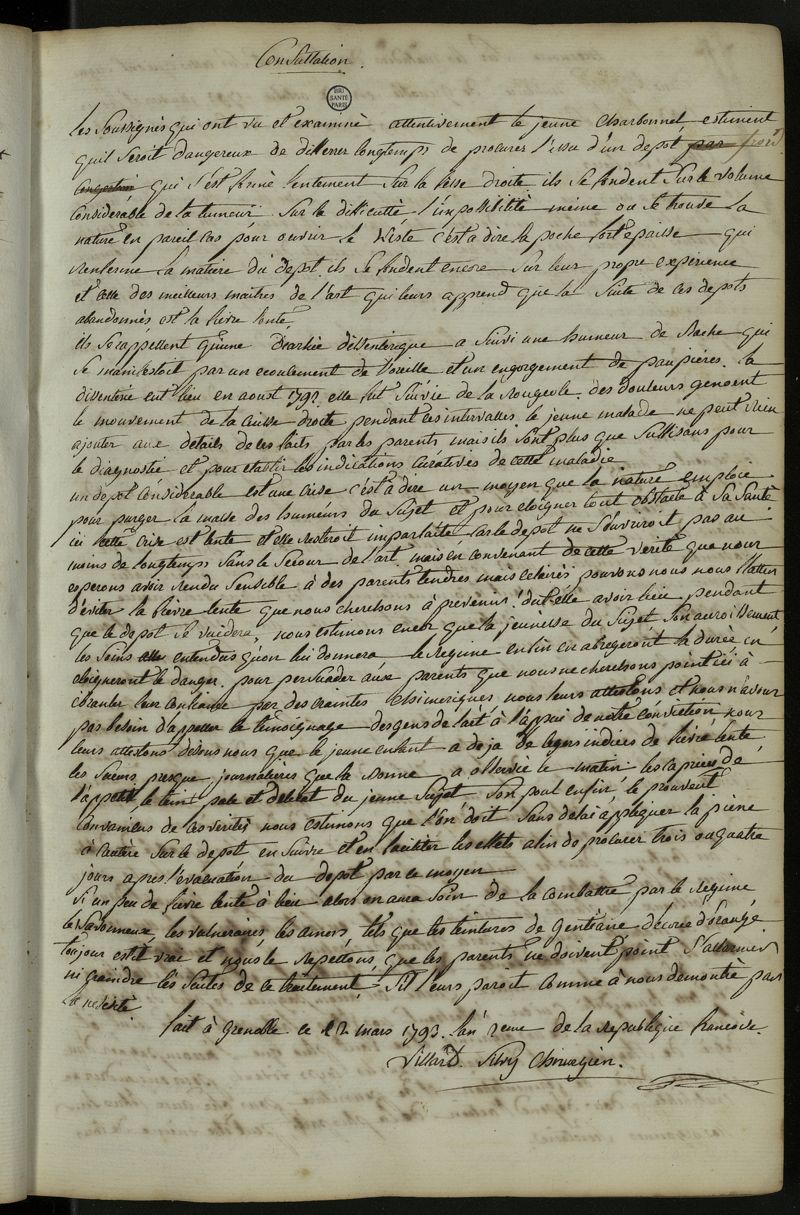 Consultation.
BIU
SANTÉ
PARIS
les Soussignés qui ont vu et examiné attentivement le jeune Charbonnel estiment
quil Seroit dangereux de differer longtemps de procurer l'issu d'un depot par froid
congestion qui s'est formé lentement Sur la fesse droite. ils se fondent Sur le volume
Considérable de la tumeur Sur la difficulté l'impossibilité même ou se trouve la
nature en pareil cas pour ouvrir le Kiste c'est a dire la poche fort epaisse qui
renferme la matiere du depot, ils se fondent encore Sur leur propre experience
et celle des meilleurs maitres de l'art qui leurs apprend que la Suite de ces depots
abandonnés est la fievre lente
ils Se rappellent qu'une diarhée dissenterique a Suivi une humeur de Rache qui
Se manifestoit par un ecoulement de l'oreille et un engorgement de paupières. la
dissenterie eut lieu en aoust 1792. elle fut Suivie de la Rougeole. des douleurs genoent
le mouvement de la Cuisse droite pendant ces intervalles le jeune malade ne peut rien
ajouter aux details de ces faits par les parents mais ils Sont plus que Suffisans pour
le diagnostic et pour etablir les indications curatives de cette maladie
un depot considerable est une crise c'est à dire un moyen que la nature emploie
pour purger la masse des humeurs du Sujet et pour eloigner tout obstacle à Sa Santé
ici cette Crise est lente et elle resteroit imparfaite car le depot ne S'ouvriroit pas au
moins de longtemps Sans le Secour de l'art. mais en convenant de cette verité que nous
esperons avoir rendu Sensible à des parents tendres mais eclairés pouvons nous nous flatter
d'eviter la fievre lente que nous cherchons à prevenir. dut elle avoir lieu pendant
que le depot Se vuidera, nous estimons encor que la jeunesse du Sujet Son accroissement
les Soins entendus qu'on lui donnera le Regime enfin en abregeront la durée en
eloigneront le danger. pour persuader aux parents que nous ne cherchons point ici à
ebranler leur confiance par des craintes chimeriques nous leurs attestons et nous n'avons
pas besoin d'appeller le temoignage des gens de l'art à l'appui de notre conviction, nous
leurs attestons disons nous que le jeune enfant a deja de legers indices de fievre lente
les Sueurs presque journalieres que la Bonne a observée le matin les caprices de
l'appetit le teint pale et defait du jeune Sujet Son poul enfin, le prouvent
Convaincus de ces verités nous estimons que l'on doit Sans delai appliquer la pierre
à Cautère Sur le depot en Suivre et en faciliter les effets afin de procurer trois ou quatre
jours apres l'evacuation du depot par ce moyen
Si un peu de fievre lente à lieu alors on aura Soin de la combattre par le Regime
le Savonneux, les vulneraires les amers tels que les teintures de Gentiane d'ecorce d'orange
toujour est il vrai et nous le Repettons, que les parents ne doivent point S'allarmer
ni craindre les Suites de ce traitement S'il leurs paroit comme à nous demontré par
la necessité
fait à Grenoble ce 22 mars 1793. l'an 2eme de la Republique francoise.
Villard Silvy Chirurgien.